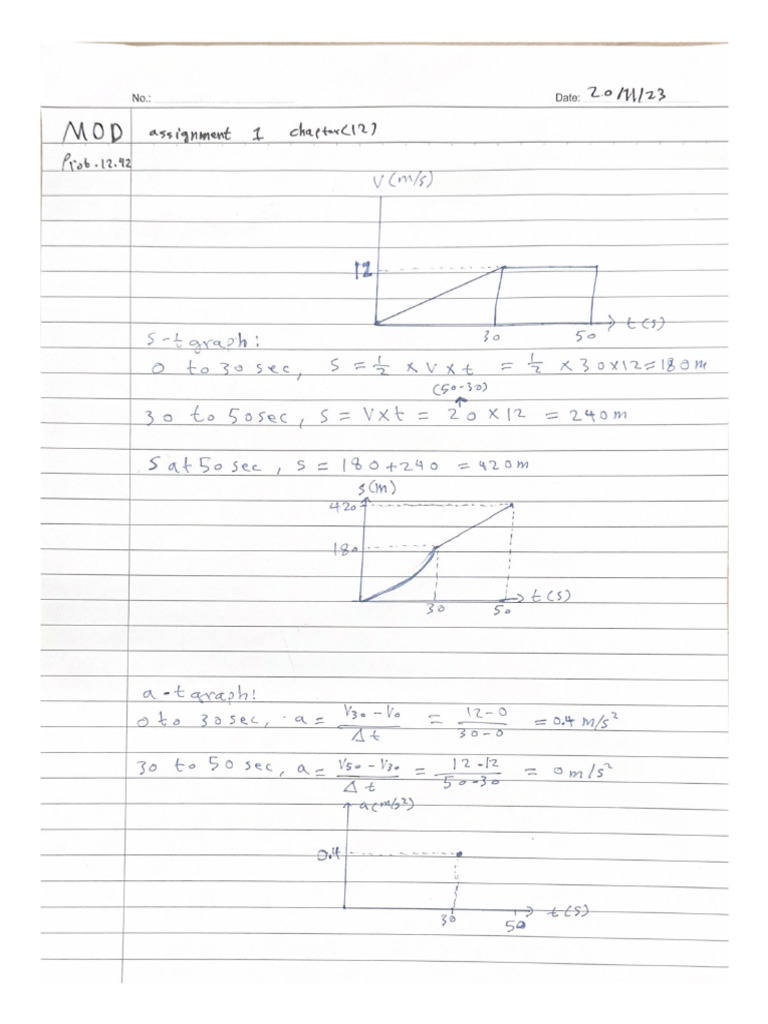 No.:
Date: 20/11/23
MOD assignment 1 chapter(12)
Prob.12.42
V(m/s)
12
30
50
t(s)
s-t graph:
0 to 30 sec, S = 1/2 × V × t = 1/2 × 30×12=180m
(50-30)
30 to 50sec, S = V×t = 20 × 12 = 240m
S at 50 sec, S = 180+240 = 420m
s(m)
420
180
30
50
t(s)
a-t graph:
0 to 30sec, a = V30 - V0 / Δt = 12-0 / 30-0 = 0.4 m/s²
30 to 50 sec, a = V50 - V30 / Δt = 12-12 / 50-30 = 0 m/s²
a(m/s²)
0.4
30
50
t(s)